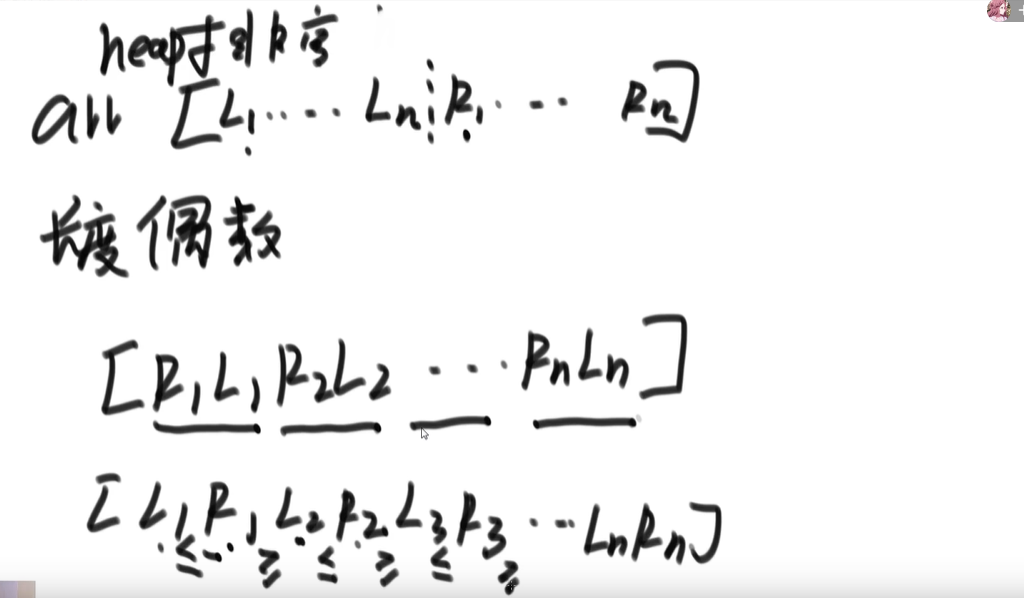 heap排序
all [L₁ ‥‥ Ln ⋮ R₁ ‥‥ Rn]
长度偶数
[R₁L₁ R₂L₂ ‥‥ RnLn]
[L₁R₁L₂R₂L₃R₃ ‥‥ LnRn]
≤ ≥ ≤ ≥ ≤ ≥